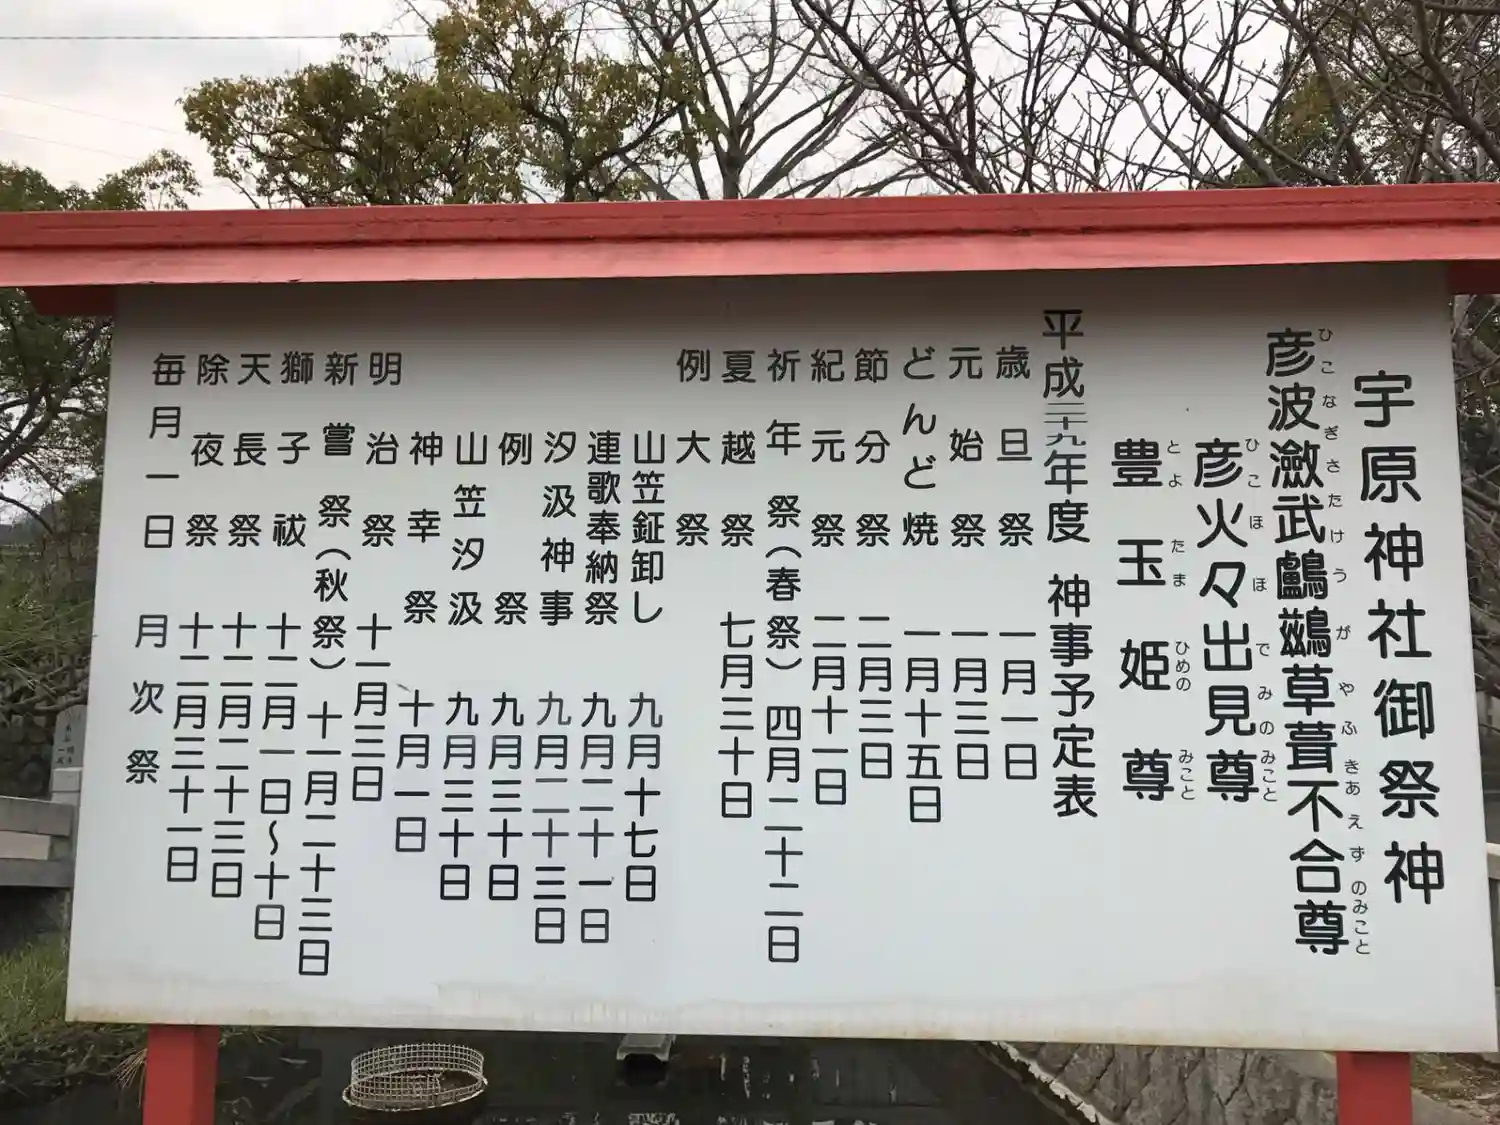 宇原神社御祭神
彦波瀲武鸕鷀草葺不合尊
ひこなぎさたけうがやふきあえずのみこと
彦火々出見尊
ひこほほでみのみこと
豊玉姫尊
とよたまひめのみこと
平成二十九年度 神事予定表
歳旦祭 一月一日
元始祭 一月三日
どんど焼 一月十五日
節分祭 二月三日
紀元祭 二月十一日
祈年祭(春祭) 四月二十二日
夏越祭 七月三十日
例大祭
山笠鉦卸し 九月十七日
連歌奉納祭 九月二十一日
汐汲神事 九月二十三日
例祭 九月三十日
山笠汐汲 九月三十日
神幸祭 十月一日
明治祭 十一月三日
新嘗祭(秋祭) 十一月二十三日
獅子祓 十二月一日〜十日
天長祭 十二月二十三日
除夜祭 十二月三十一日
毎月一日 月次祭